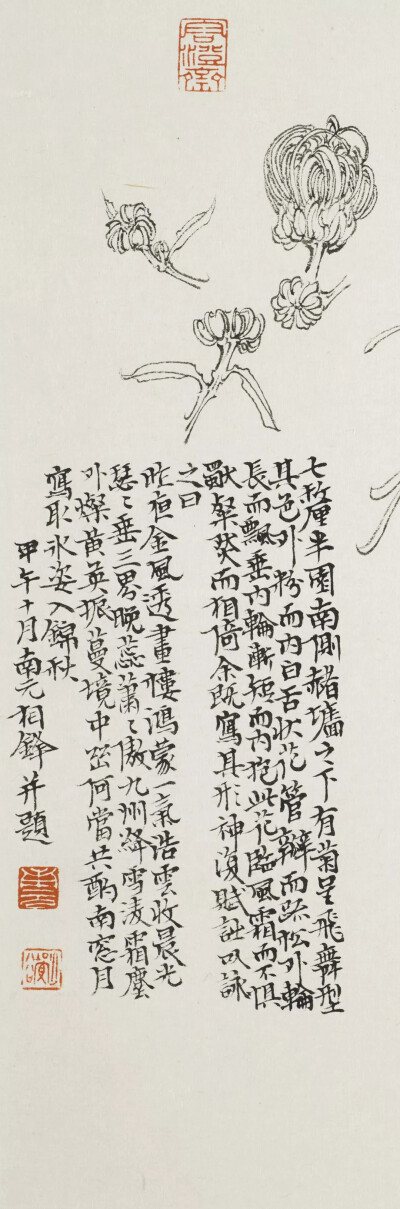 七釐半園南側赭墻之下有菊呈飛舞型
其色外粉而内白舌狀花管辦而疏松外輪
長而飄垂内輪漸短而内抱此花臨風霜而不惧
獣粲葵而相倚余既寫其形神復賦詩以詠
之曰
昨夜金風透畫樓鴻蒙一氣浩雲收晨光
瑟々垂三界晚蕊蕭々傲九州絳雪凌霜塵
外燦黄英振蔓境中 何當共酌南窓月
寫取氷姿入錦秋
甲午十月南元相鋒并題